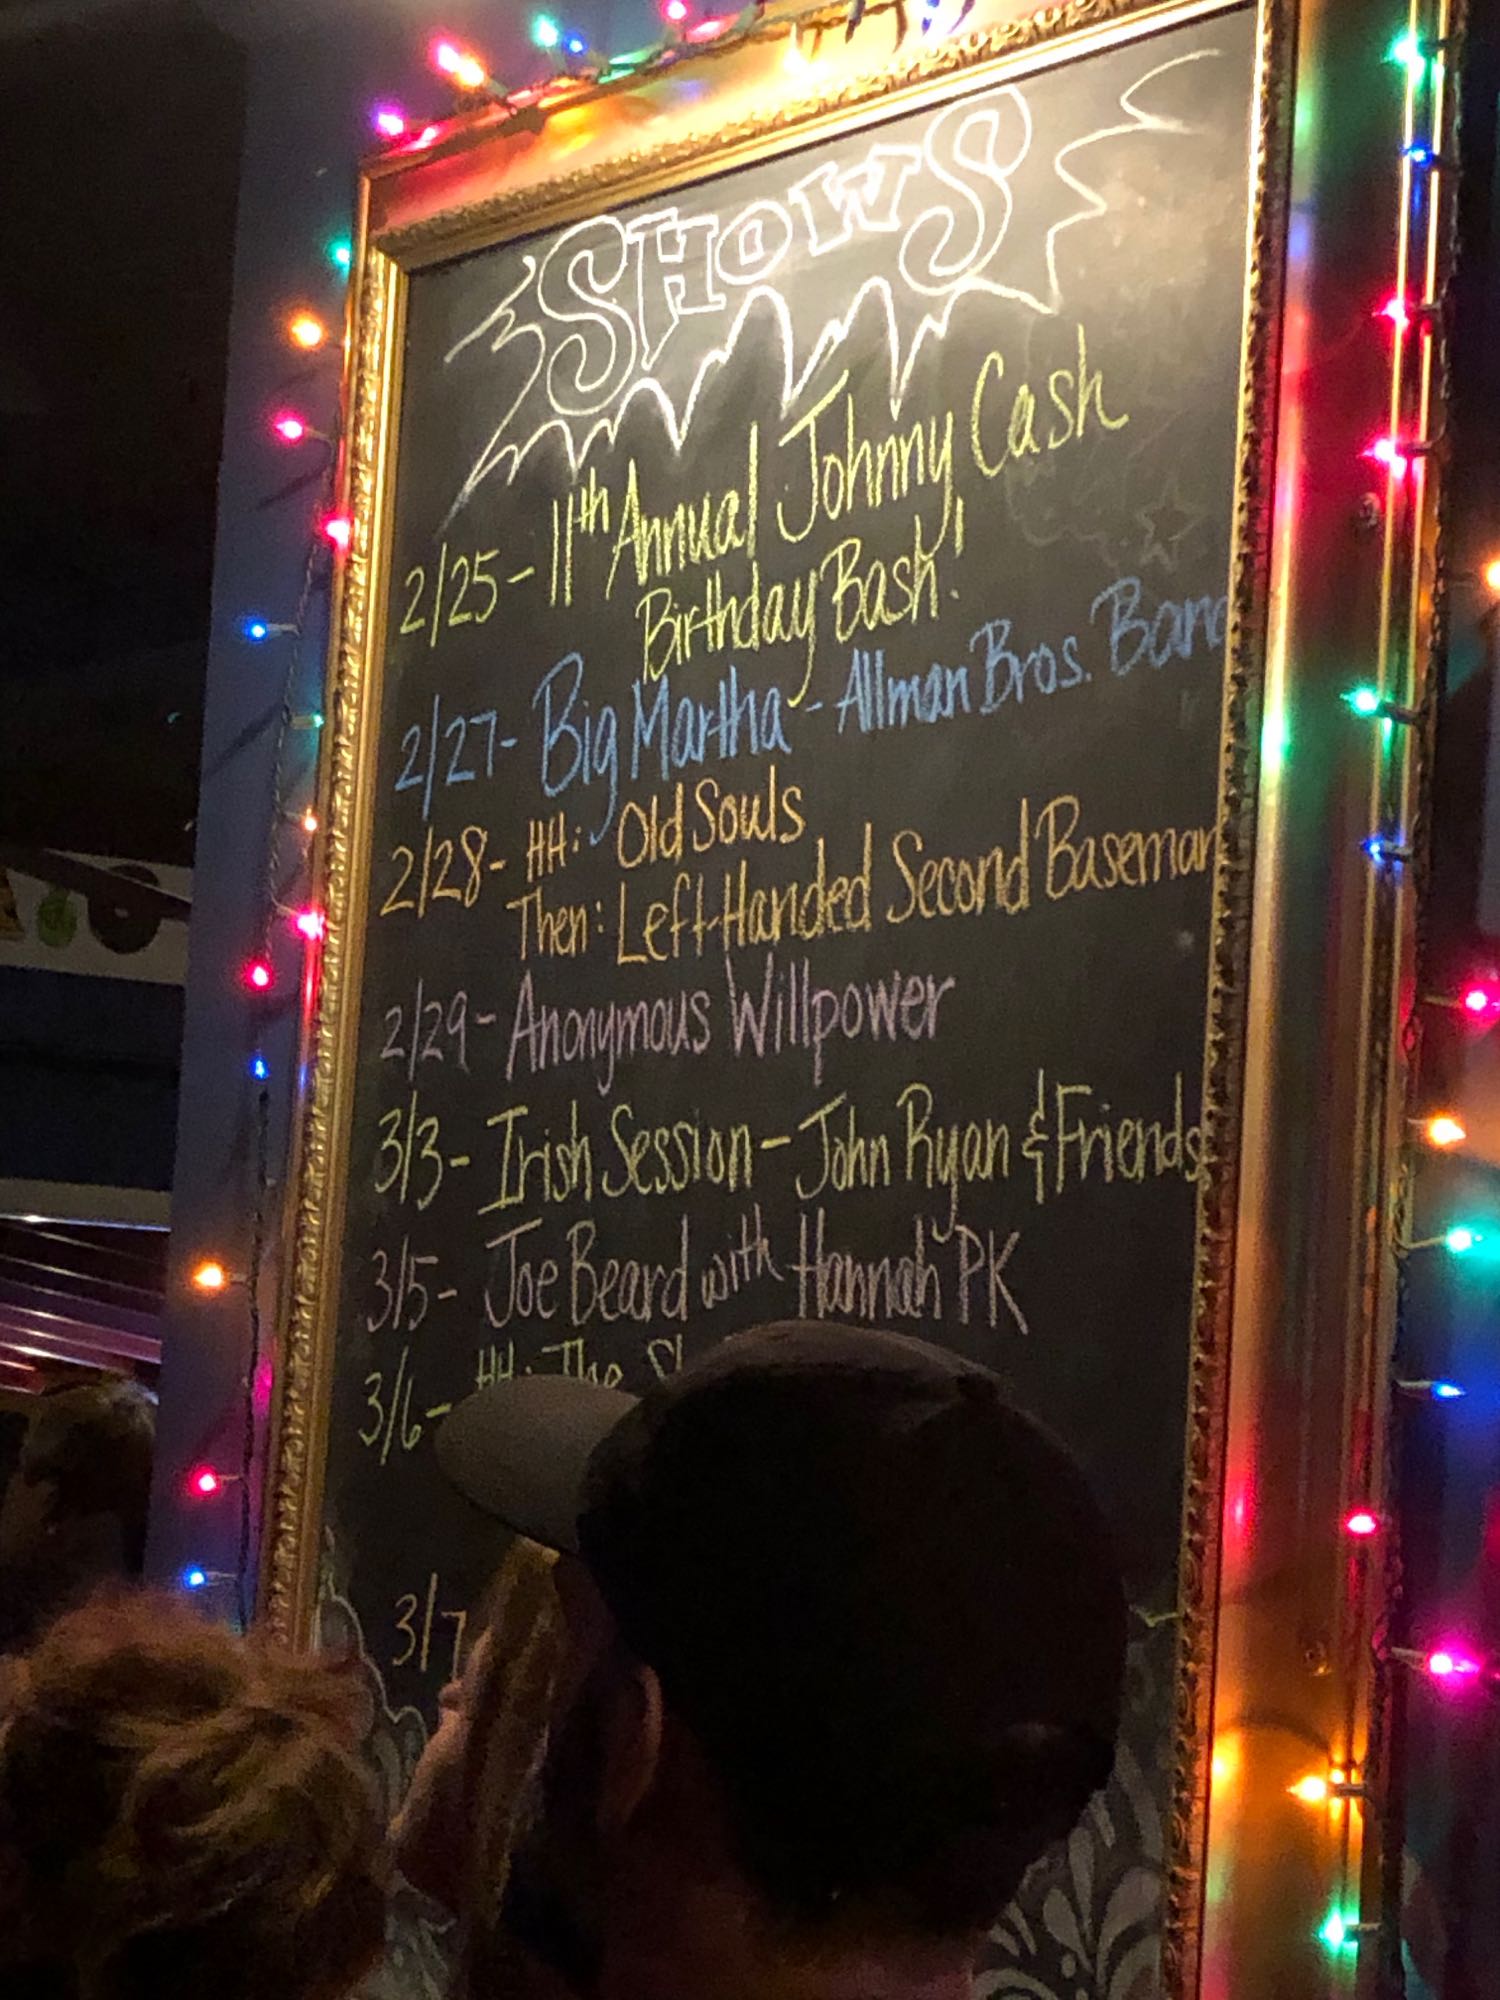 SHOWS
2/25 - 11th Annual Johnny Cash
Birthday Bash!
2/27 - Big Martha - Allman Bros. Band
2/28 - HH: Old Souls
Then: Left-Handed Second Baseman
2/29 - Anonymous Willpower
3/3 - Irish Session - John Ryan & Friends
3/5 - Joe Beard with Hannah PK
3/6 - HH: The
3/7